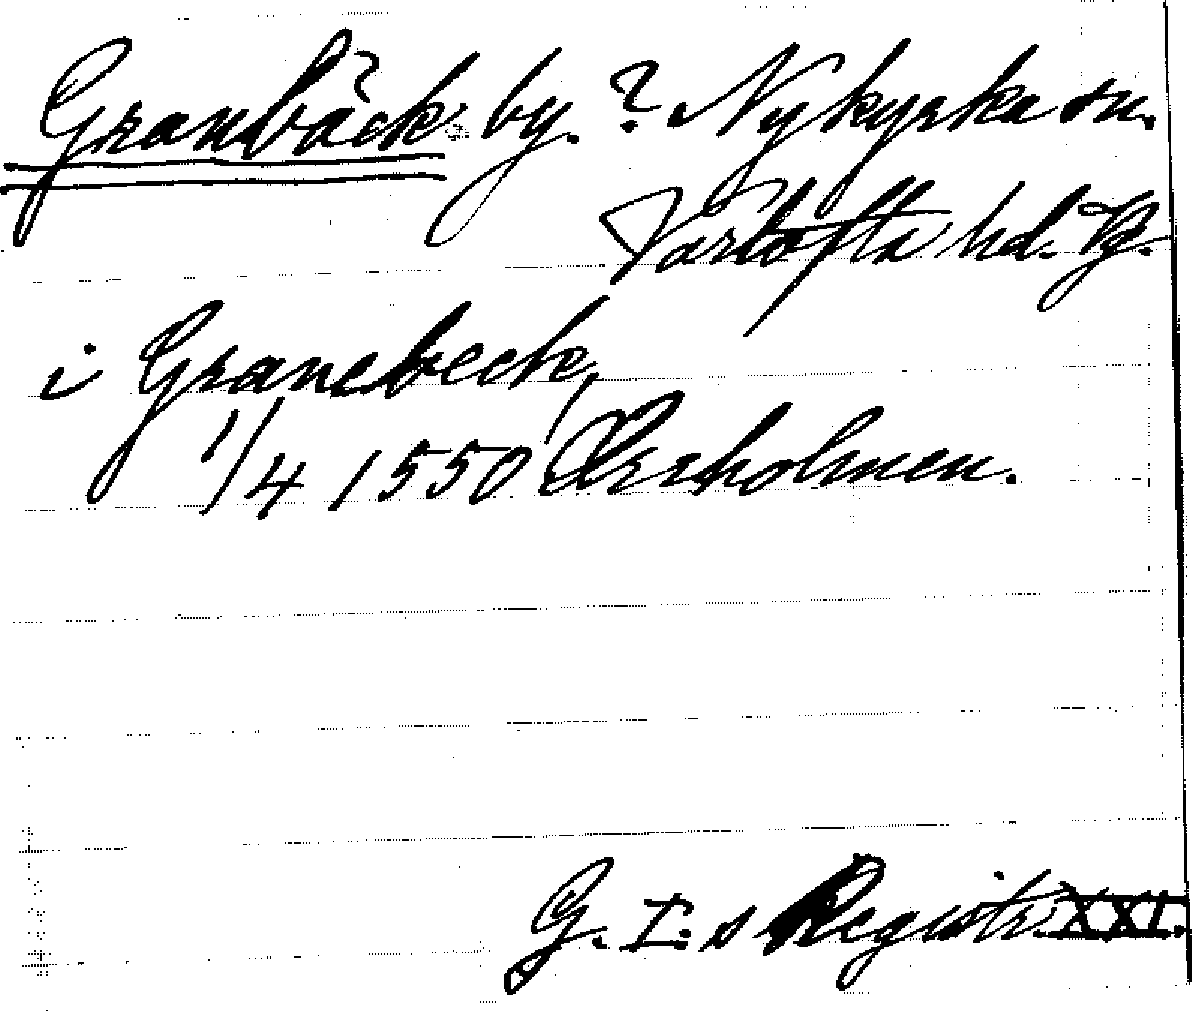 Granbäck by. ? Nykyrka sn.
Vartofta hd. Vg.
i Granebeck,
1/4 1550
G. I:s Registr. XXI.